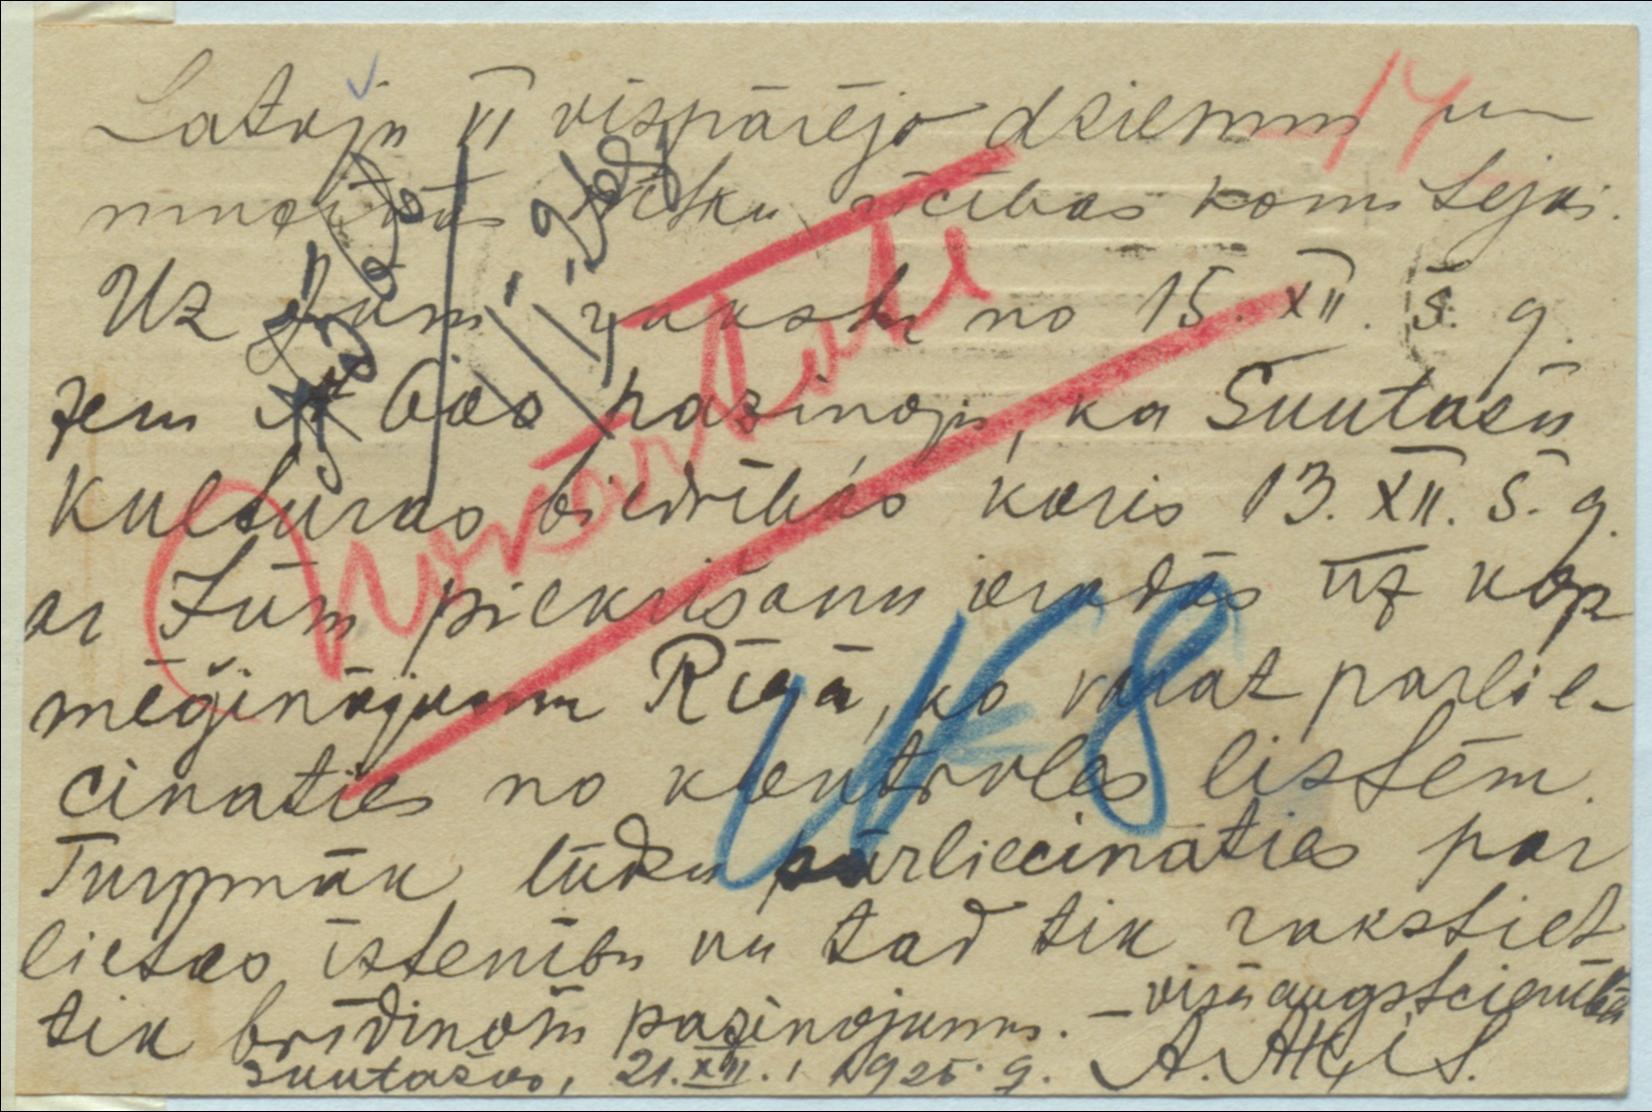 Latvju VI vispārējo dziesmu un
svētku rīcības komitejai.
Uz Jūsu rakstu no 15. XII. š. g.
zem paziņoju, ka Suntažu
Kultūras biedrības koris 13. XII. š. g.
ar Jūsu piekrišanu ieradās uz kop
mēģinājumu Rīgā, ko varat parlie-
cinaties no kontroles listēm.
Turpmāk lūdzu pārliecināties par
lietas īstenību un tad tik rakstiet
tik brīdinoši paziņojumu. – visā augstcienībā
Suntažos, 21. XII. 1925. g. A.
Norakstīts
14
8